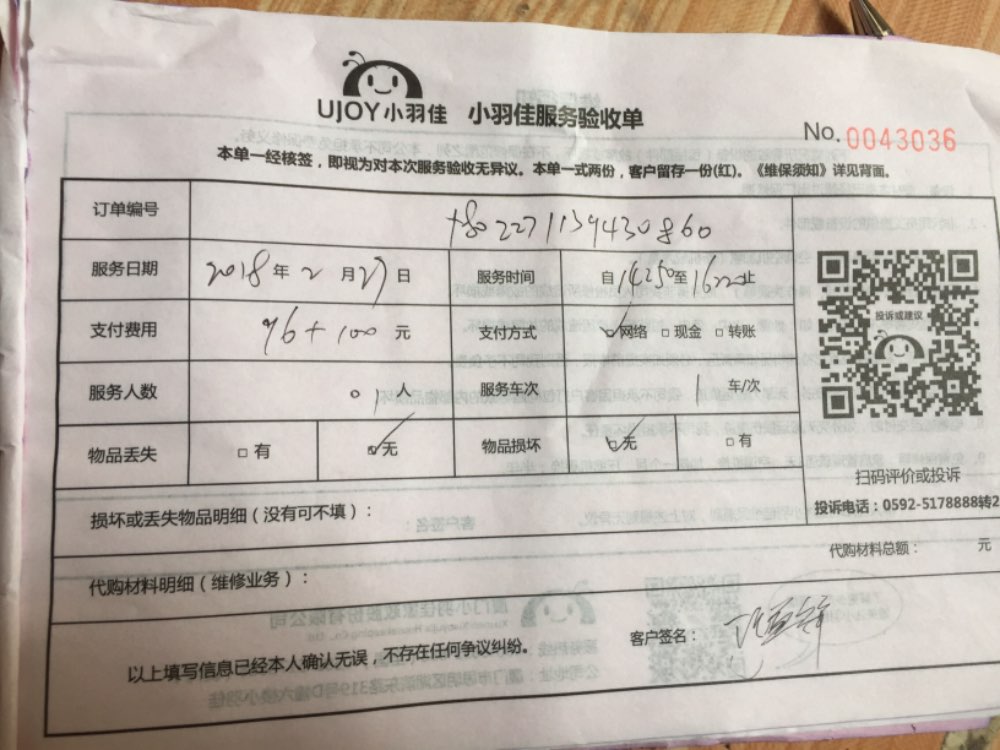 UJOY小羽佳 小羽佳服务验收单
No.0043036
本单一经核签，即视为对本次服务验收无异议。本单一式两份，客户留存一份(红)。《维保须知》详见背面。
订单编号 2271139430860
服务日期 2018年2月27日 服务时间 自14:50至16:20止
支付费用 96+100元 支付方式 网络 □现金 □转账
服务人数 01人 服务车次 1车/次
物品丢失 □有 ☑无 物品损坏 ☑无 □有
投诉或建议
扫码评价或投诉
投诉电话：0592-5178888转2
损坏或丢失物品明细（没有可不填）：
代购材料总额： 元
代购材料明细（维修业务）：
以上填写信息已经本人确认无误，不存在任何争议纠纷。
客户签名：